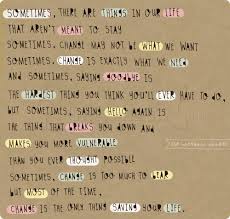 SOMETIMES, THERE ARE THINGS IN OUR LIFE
THAT AREN'T MEANT TO STAY
SOMETIMES, CHANGE MAY NOT BE WHAT WE WANT
SOMETIMES, CHANGE IS EXACTLY WHAT WE NEED
AND SOMETIMES, SAYING GOODBYE IS
THE HARDEST THING YOU THINK YOU'LL EVER HAVE TO DO,
BUT SOMETIMES, SAYING HELLO AGAIN IS
THE THING THAT BREAKS YOU DOWN AND
MAKES YOU MORE VULNERABLE
THAN YOU EVER THOUGHT POSSIBLE
SOMETIMES, CHANGE IS TOO MUCH TO BEAR
BUT MOST OF THE TIME,
CHANGE IS THE ONLY THING SAVING YOUR LIFE.